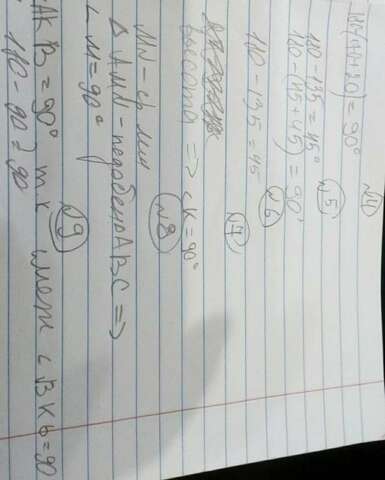 №4
= 90°
№5
180-135 = 45°
180-(45+45) = 90°
№6
180-135 = 45
№7
высота => <K = 90°
№8
MN - ср лин
Δ AMN - подобен ABC =>
∟ M = 90°
№9
AKB = 90° т к смеж с BKB = 90
180-90 = 90